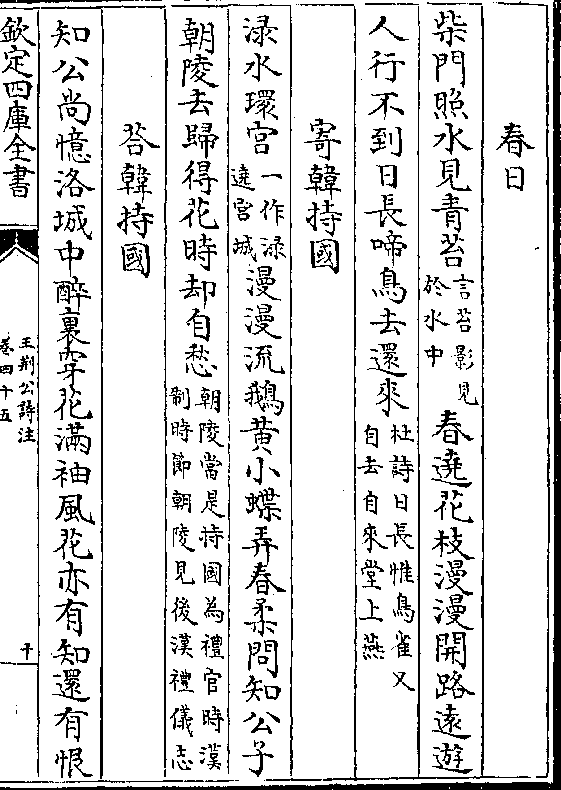 春日
柴門照水見青苔言苔影見於水中春遶花枝漫漫開路遠遊
人行不到日長啼鳥去還來杜詩日長惟鳥雀又自去自來堂上燕
寄韓持國
渌水環宮一作渌遶宮城漫漫流鵝黃小蝶弄春柔問知公子
朝陵去歸得花時却自愁朝陵當是持國為禮官時漢制時節朝陵見後漢禮儀志
荅韓持國
知公尚憶洛城中醉裏穿花滿袖風花亦有知還有恨
欽定四庫全書
王荆公詩注
卷四十五
十